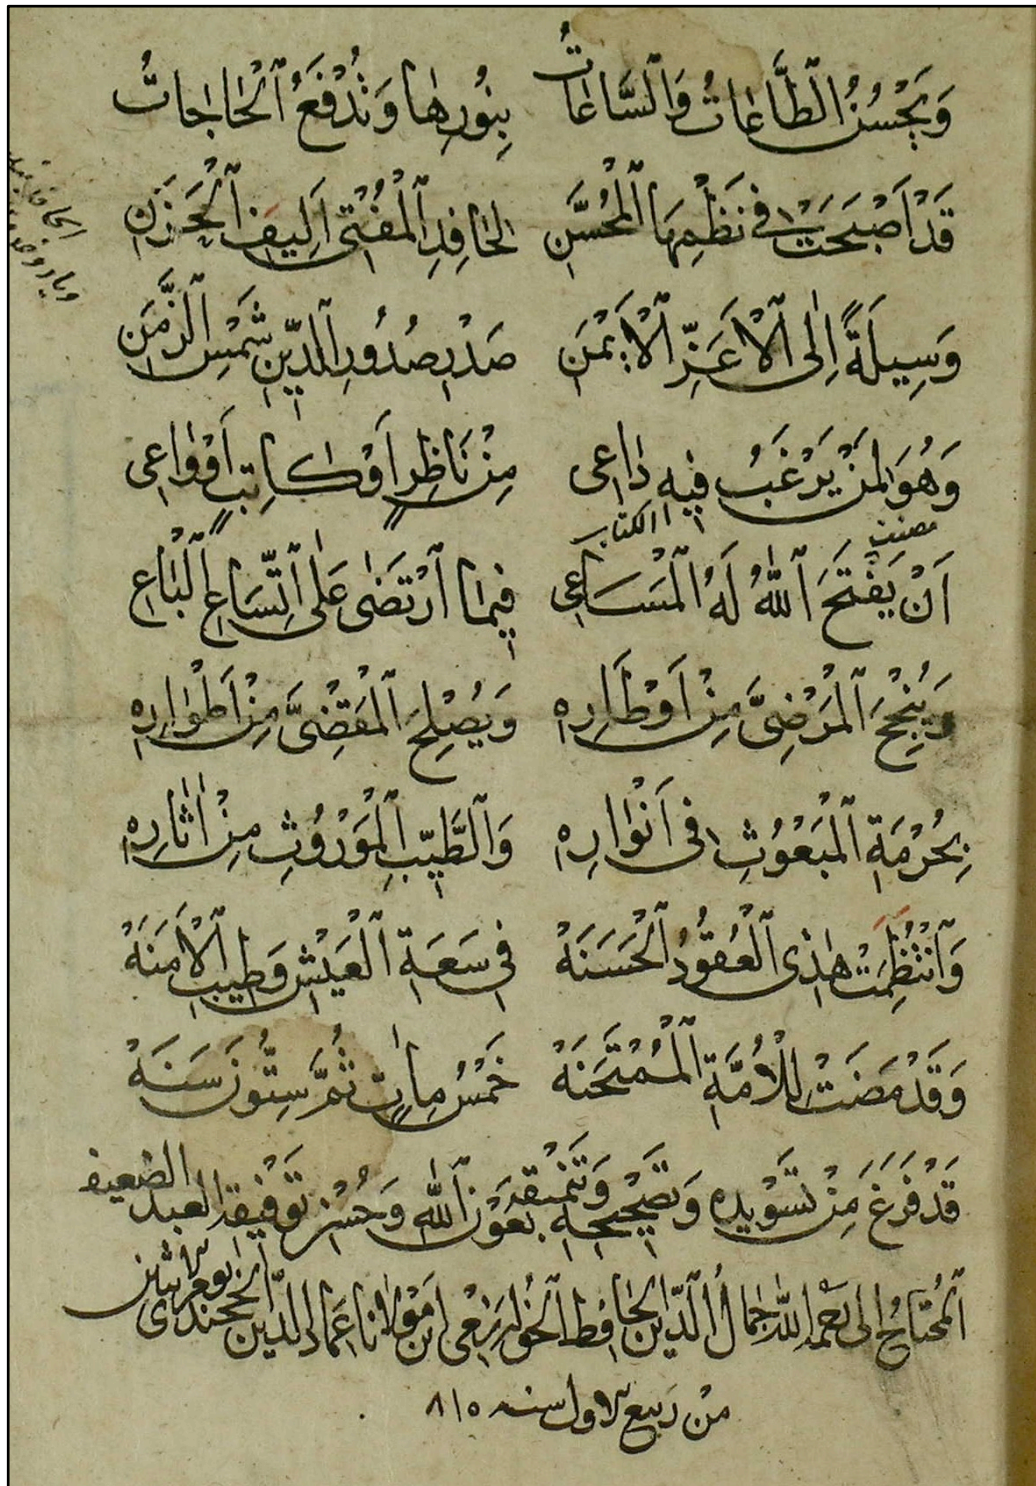 وَيَحْسُنُ الطَّاعَاتُ وَالسَّاعَاتُ بِنُورِهَا وَتُدْفَعُ الْحَاجَاتُ
قَدْ أَصْبَحَتْ فِي نَظْمِهَا الْمُحَسَّنِ الحَافِدِ الْمُفْتِي أَلِيفِ الْحَزَنِ
وَسِيلَةً إِلَى الْأَعَزِّ الْأَيْمَنِ صَدْرِ صُدُورِ الدِّينِ شَمْسِ الزَّمَنِ
وَهُوَ لِمَنْ يَرْغَبُ فِيهِ دَاعِي مِنْ نَاظِرٍ أَوْ كَاتِبٍ أَوْ وَاعِي
مصنف الكتاب
أَنْ يَفْتَحَ اللّٰهُ لَهُ الْمَسَاعِي فِيمَا ارْتَضَى عَلَى اتِّسَاعِ الْبَاعِ
وَيُنْجِحَ الْمَرْضِيَّ مِنْ أَوْطَارِهِ وَيُصْلِحَ الْمَقْضِيَّ مِنْ أَطْوَارِهِ
بِحُرْمَةِ الْمَبْعُوثِ فِي أَنْوَارِهِ وَالطَّيِّبِ الْمَوْرُوثِ مِنْ آثَارِهِ
وَانْتُظِمَتْ هٰذِي الْعُقُودُ الْحَسَنَهْ فِي سَعَةِ الْعَيْشِ وَطِيبِ الْأَمَنَهْ
وَقَدْ مَضَتْ لِلْأُمَّةِ الْمُمْتَحَنَهْ خَمْسُ مِائٍ ثُمَّ سِتُّونَ سَنَهْ
قَدْ فَرَغَ مِنْ تَسْوِيدِهِ وَتَصْحِيحِهِ وَتَنْمِيقِهِ بِعَوْنِ اللّٰهِ وَحُسْنِ تَوْفِيقِهِ العبد الضعيف
الْمُحْتَاجُ إِلَى رَحْمَةِ اللّٰهِ جَمَالُ الدِّينِ الحَافِظ الْخُوَارَزْمِي ابْن مَوْلَانَا عِمَادِ الدِّين الخجندي يوم الاثنين
من ربيع الاول سنه ٨١٥